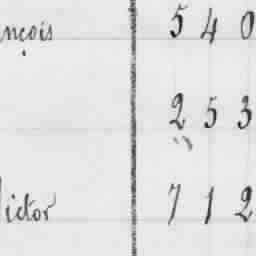 nçois 5 4 0
2 5 3
Victor 7 1 2